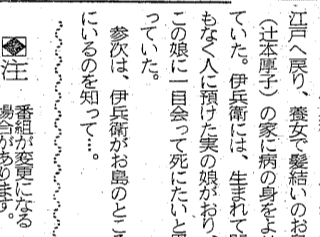 江戸へ戻り、養女で髪結いのお島
（辻本厚子）の家に病の身をよ
ていた。伊兵衛には、生まれて
もなく人に預けた実の娘がおり、
この娘に一目会って死にたいと
っていた。
参次は、伊兵衛がお島のところ
にいるのを知って…。
注
番組が変更になる
場合があります。